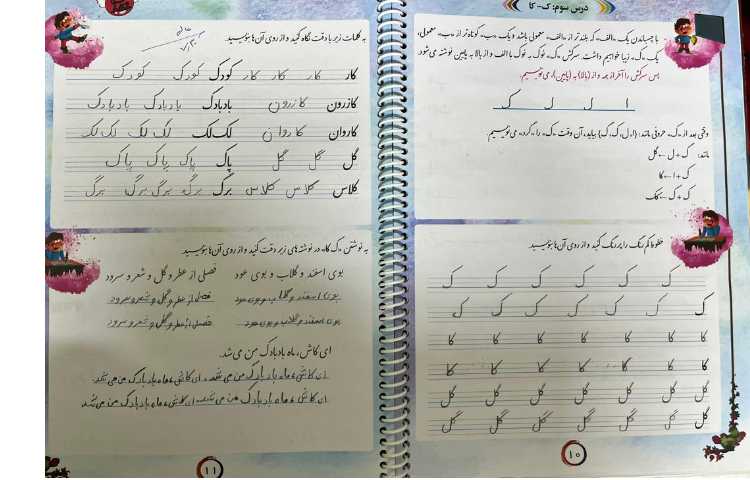 درس سوم: ک - کا
با چسباندن یک «الف» که بلندتر از «الف» معمولی باشد و یک «ب» کوتاه‌تر از «ب» معمولی،
یک «ک» زیبا خواهیم داشت. سرکش «ک» نوک به نوک با الف و از بالا به پایین نوشته می‌شود.
پس سرکش را آخر از همه و از (بالا) به (پایین)، می‌نویسیم.
ا ل ل ک
وقتی بعد از «ک» حروفی مانند: (ا، ل، ک، گ) بیاید، آن وقت «ک» را «گرد» می‌نویسیم
مانند: ک + ل ← کل
ک + ا ← کا
ک + ک ← کک
خطوط کم رنگ را پررنگ کنید و از روی آن‌ها بنویسید
ک ک ک ک ک ک
ک ک ک ک ک ک ک
کا کا کا کا کا کا کا
کا کا کا کا کا کا کا
گل گل گل گل گل گل گل
گل گل گل گل گل گل گل
۱۰
به کلمات زیر با دقت نگاه کنید و از روی آن‌ها بنویسید
کار کار کار کار کودک کودک کودک
کازرون کازرون بادبادک بادبادک بادبادک
کاروان کاروان لک‌لک لک‌لک لک‌لک لک‌لک
گل گل گل پاک پاک پاک پاک
کلاس کلاس کلاس برگ برگ برگ برگ برگ
به نوشتن «ک، کا» در نوشته‌های زیر دقت کنید و از روی آن‌ها بنویسید
بوی اسفند و گلاب و بوی عود فصلی از عطر و گل و شعر و سرود
بوی اسفند و گلاب و بوی عود فصلی از عطر و گل و شعر و سرود
بوی اسفند و گلاب و بوی عود فصلی از عطر و گل و شعر و سرود
ای کاش، ماه بادبادک من می‌شد.
ای کاش، ماه بادبادک من می‌شد. ای کاش، ماه بادبادک من می‌شد.
ای کاش، ماه بادبادک من می‌شد. ای کاش، ماه بادبادک من می‌شد.
۱۱